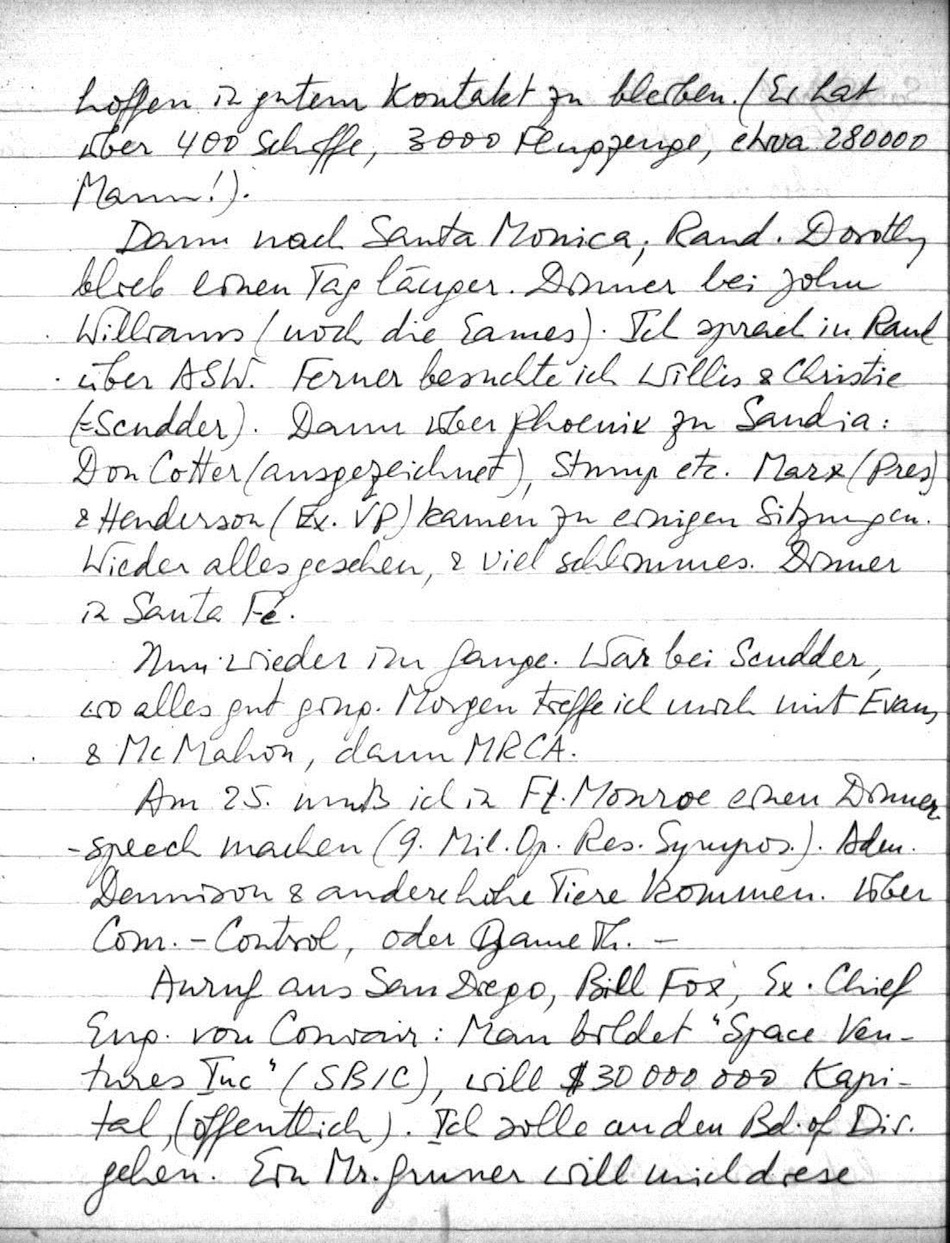 hoffen in gutem Kontakt zu bleiben. (Er hat
über 400 Schiffe, 3000 Flugzeuge, etwa 280000
Mann!).
Dann nach Santa Monica, Rand. Dorothy
blieb einen Tag länger. Dinner bei John
Williams (noch die Eames). Ich sprach in Rand
über ASW. Ferner besuchte ich Willis & Christie
(=Scudder). Dann über Phoenix zu Sandia:
Don Cotter (ausgezeichnet), Stump etc. Marx (Pres)
& Henderson (Ex. VP) kamen zu einigen Sitzungen.
Wieder alles gesehen, & viel schlimmes. Dinner
in Santa Fé.
Nun wieder im Gange. War bei Scudder,
wo alles gut ging. Morgen treffe ich mich mit Evans
& McMahon, dann MRCA.
Am 25. muß ich in Ft. Monroe einen Dinner
-speech machen (9. Mil. Op. Res. Sympos.). Adm.
Dennison & andere hohe Tiere kommen. Über
Com. - Control, oder Game Th. -
Anruf aus San Diego, Bill Fox, Ex. Chief
Eng. von Convair: Man bildet "Space Ven-
tures Inc" (SBIC), will $30 000 000 Kapi-
tal, (öffentlich). Ich solle an den Bd. of Dir.
gehen. Ein Mr. Gruner will mich diese